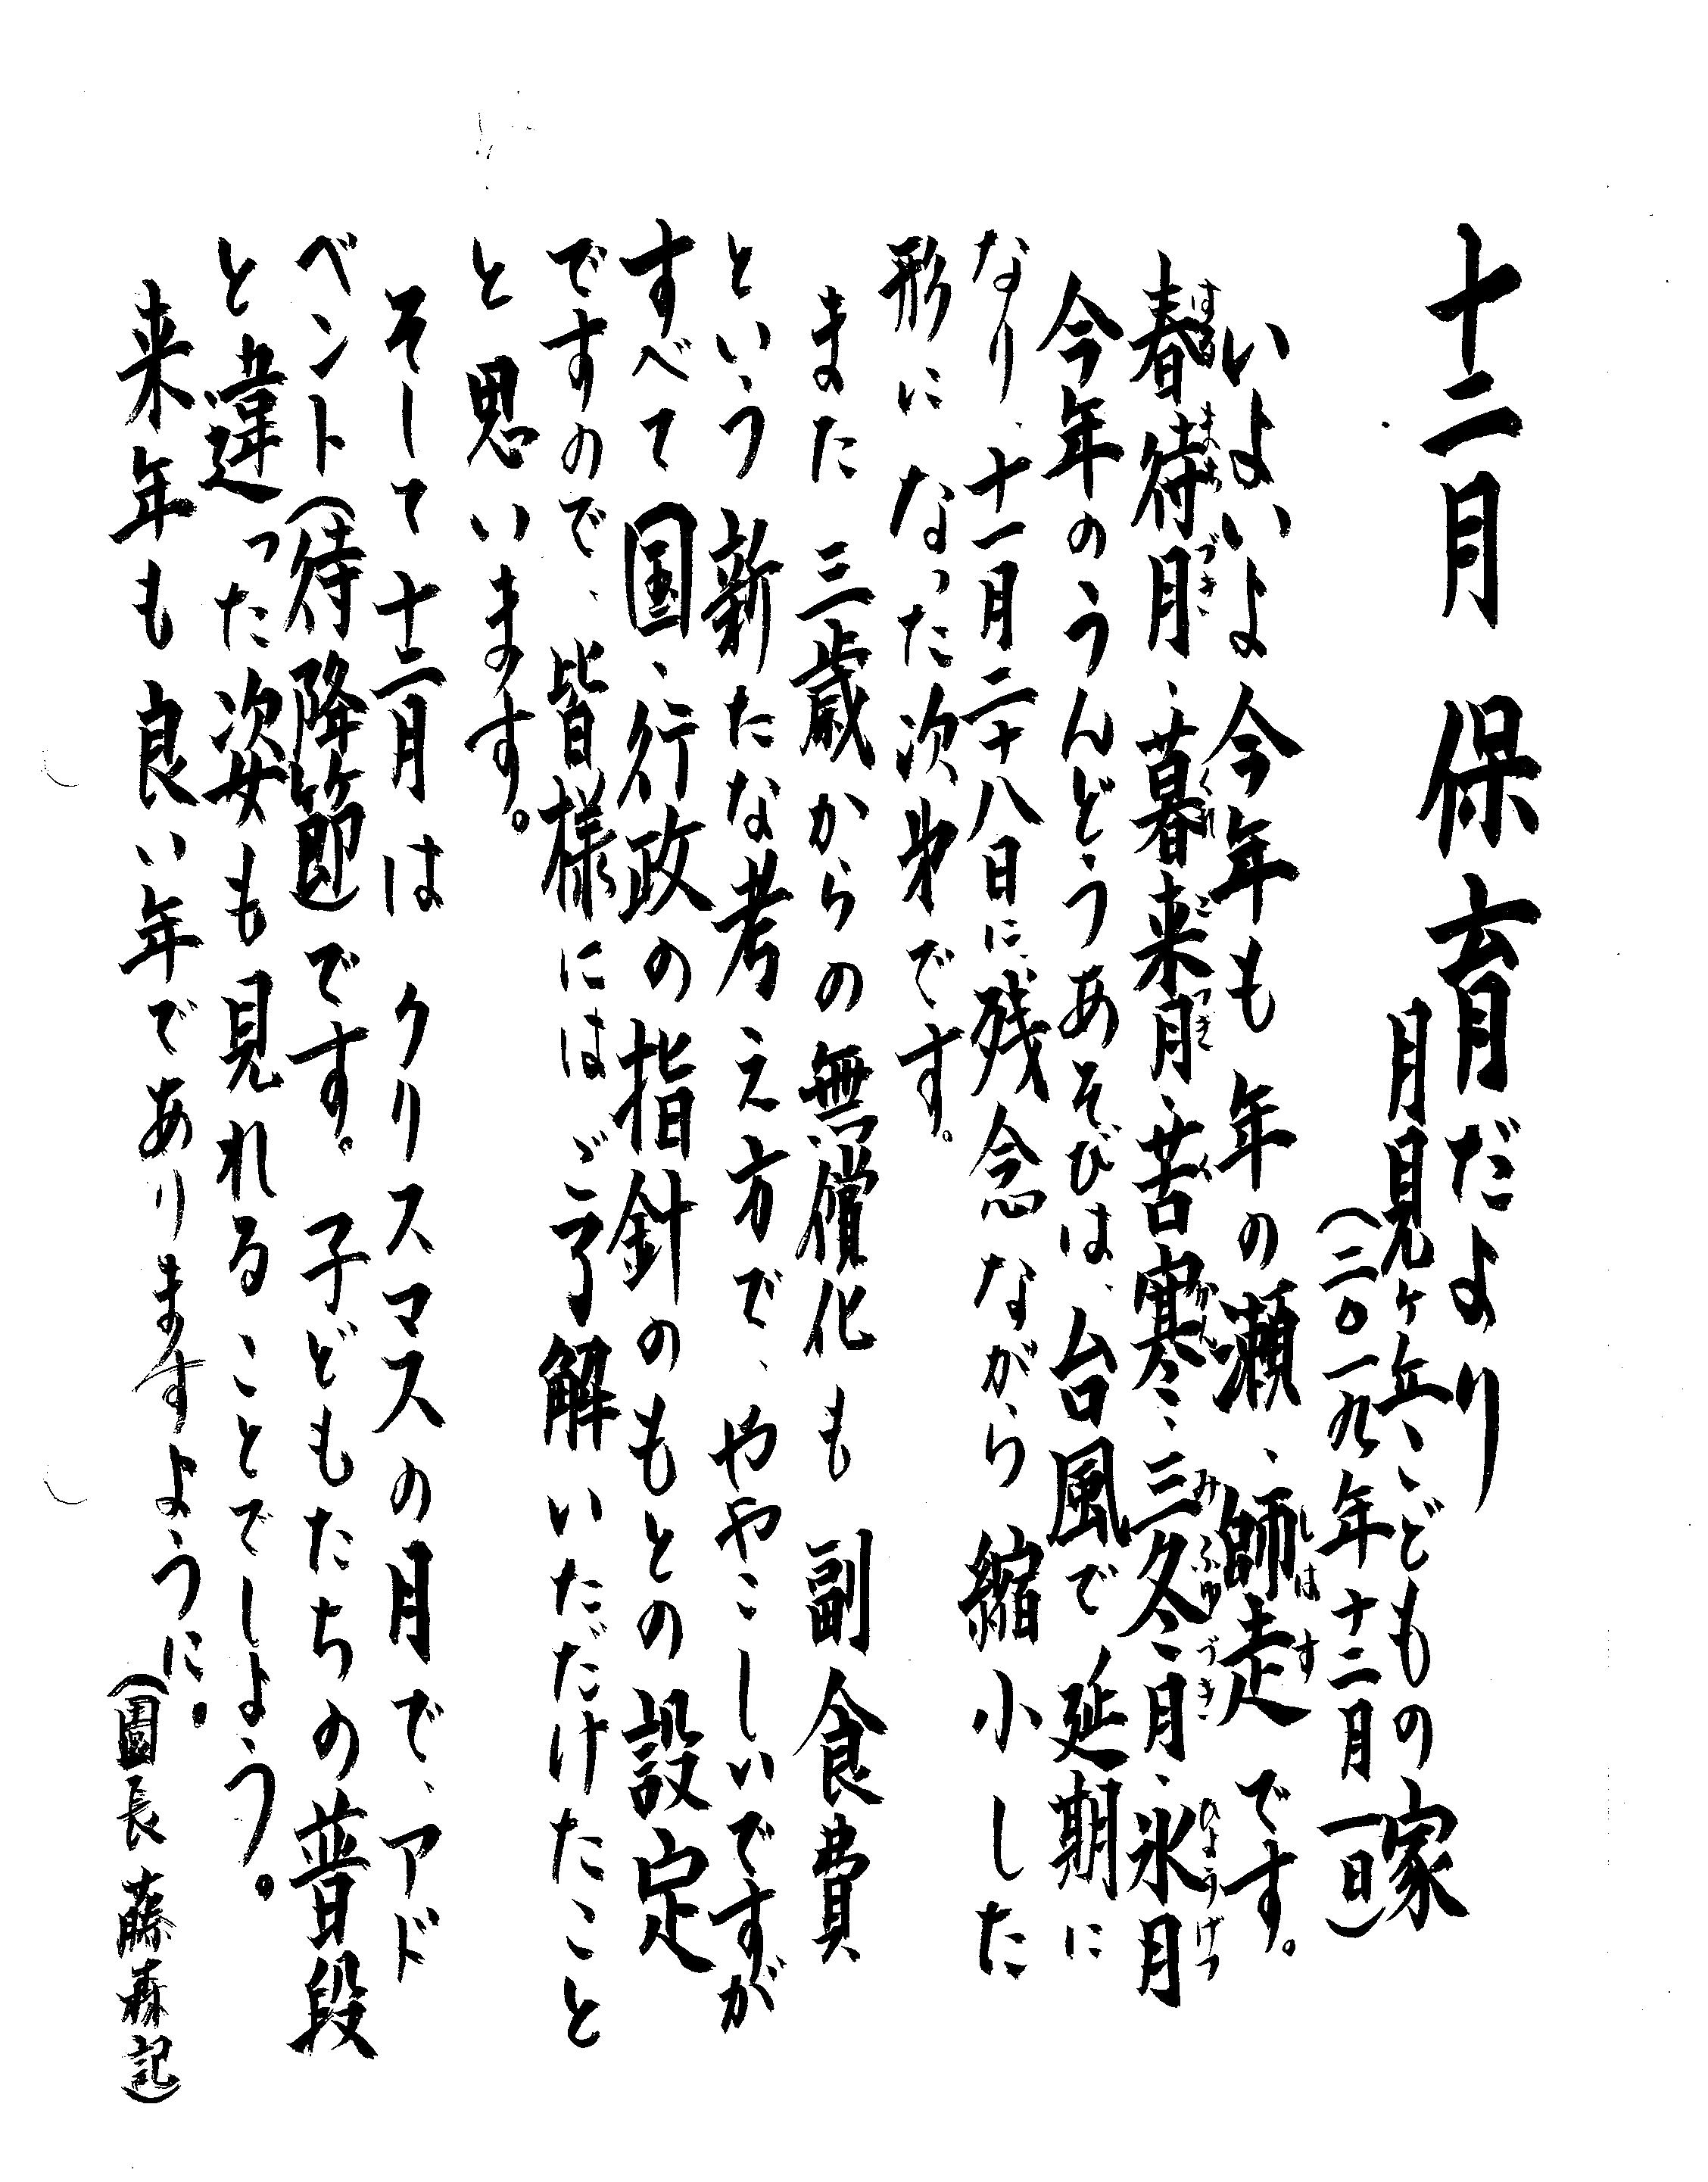 十二月 保育だより
月見ヶ丘こどもの家
(二〇一九年十二月一日)
いよいよ今年も年の瀬、師走です。
春待月、暮来月、苦寒、三冬月、氷月
今年のうんどうあそびは、台風で延期に
なり、十一月二十八日に、残念ながら縮小した
形になった次第です。
また三歳からの無償化も副食費
という新たな考え方で、ややこしいですが
すべて国、行政の指針のもとの設定
ですので、皆様にはご了解いただけたこと
と思います。
そして十二月はクリスマスの月で、アド
ベント(待降節)です。子どもたちの普段
と違った姿も見れることでしょう。
来年も良い年でありますように。
(園長 藤森記)